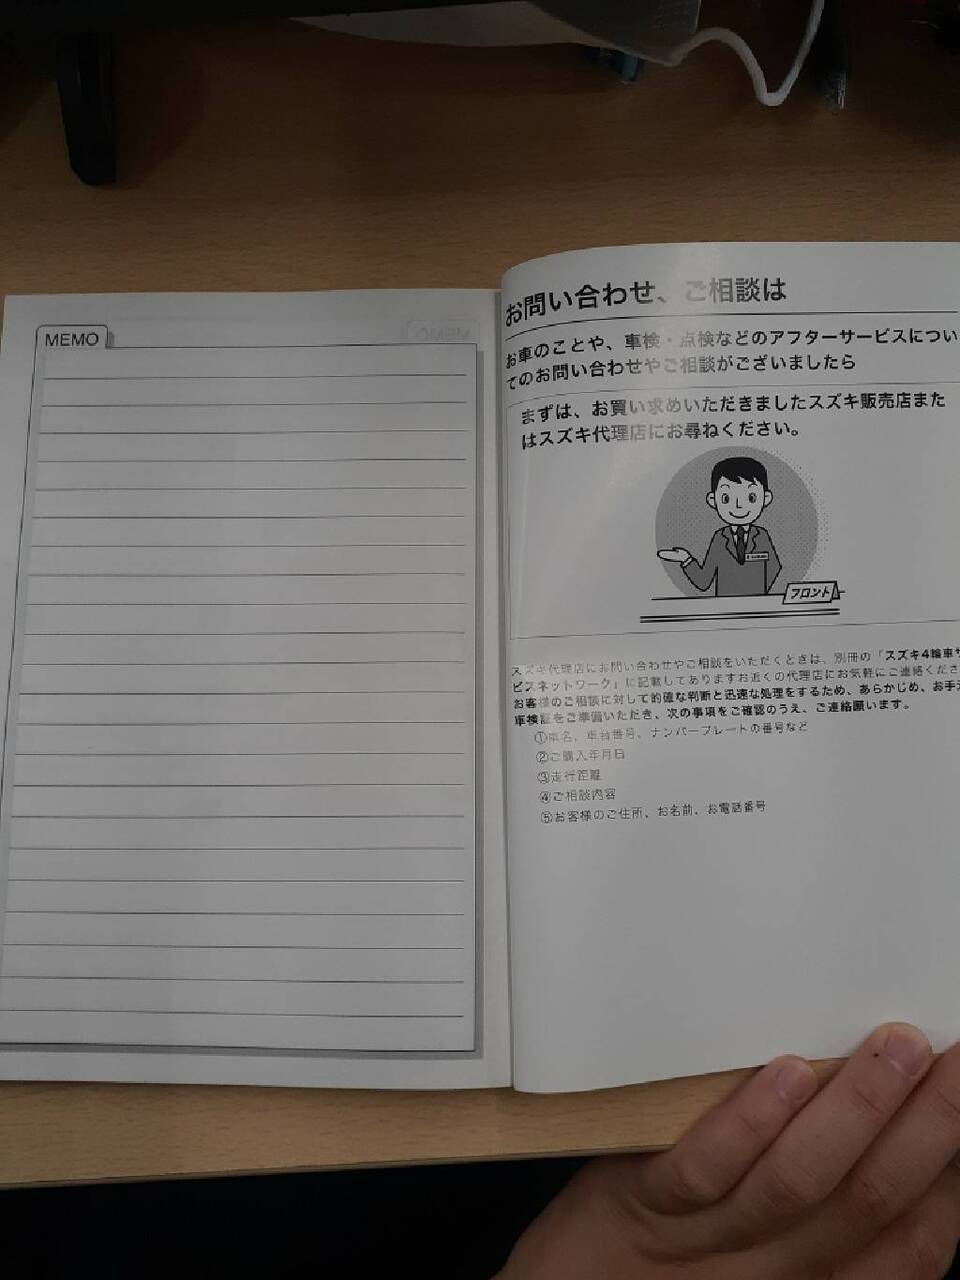 MEMO
お問い合わせ、ご相談は
お車のことや、車検・点検などのアフターサービスについ
てのお問い合わせやご相談がございましたら
まずは、お買い求めいただきましたスズキ販売店また
はスズキ代理店にお尋ねください。
フロント
スズキ代理店にお問い合わせやご相談をいただくときは、別冊の「スズキ4輪車サ
ビスネットワーク」に記載してありますお近くの代理店にお気軽にご連絡くださ
お客様のご相談に対して的確な判断と迅速な処理をするため、あらかじめ、お手元
車検証をご準備いただき、次の事項をご確認のうえ、ご連絡願います。
①車名、車台番号、ナンバープレートの番号など
②ご購入年月日
③走行距離
④ご相談内容
⑤お客様のご住所、お名前、お電話番号